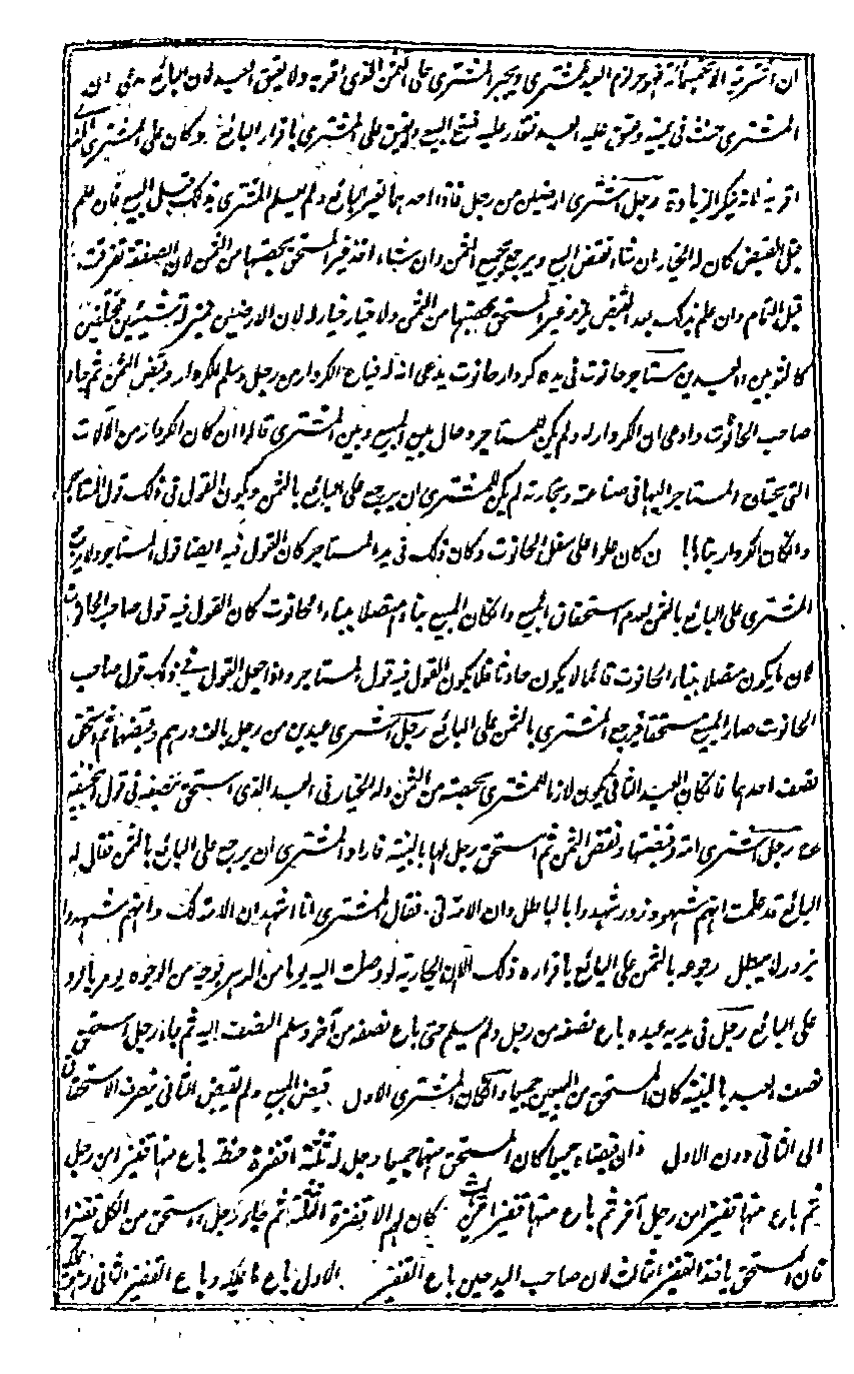 ان اشتريته الا بخمسمائة فهو حر لزم العبد المشتري ويجبر المشتري على الثمن الذي اقر به ولا يعتق العبد لان البائع يدعي ان
المشتري حنث في يمينه وعتق عليه العبد فتعذر عليه فسخ البيع ولا يعتق على المشتري باقرار البائع وكان على المشتري الثمن
اقر به لانه ينكر الزيادة رجل اشترى ارضين من رجل فاذا احدهما لغير البائع ولم يعلم المشتري بذلك قبل البيع فان علم
قبل القبض كان له الخيار ان شاء نقض البيع ويرجع بجميع الثمن وان شاء اخذ غير المستحق بحصتها من الثمن لان الصفقة تفرقت
قبل التمام وان علم بذلك بعد القبض يلزمه غير المستحق بحصتها من الثمن ولا خيار له لان الارضين بمنزلة شيئين مختلفين
كالثوبين والعبدين مستاجر حانوت في يده كردار حانوت يدعي انه له فباع الكردار من رجل وسلم الكردار وقبض الثمن ثم جاء
صاحب الحانوت وادعى ان الكردار له ولم يكن للمستاجر وحال بين المبيع وبين المشتري قالوا ان كان الكردار من الآلات
التي يحتاج المستاجر اليها في صناعته وتجارته لم يكن للمشتري ان يرجع على البائع بالثمن ويكون القول في ذلك قول المستاجر
وان كان الكردار بناء ان كان علوا على سفل الحانوت وكان ذلك في يد المستاجر كان القول فيه ايضا قول المستاجر ولا يرجع
المشتري على البائع بالثمن لعدم استحقاق المبيع وان كان المبيع بناء متصلا ببناء الحانوت كان القول فيه قول صاحب الحانوت
لان ما يكون متصلا ببناء الحانوت قائما لا يكون حادثا فلا يكون القول فيه قول المستاجر واذا جعل القول في ذلك قول صاحب
الحانوت صار المبيع مستحقا فيرجع المشتري بالثمن على البائع رجل اشترى عبدين من رجل بالف درهم وقبضهما ثم استحق
نصف احدهما فان كان العبد الثاني يكون لازما للمشتري بحصته من الثمن وله الخيار في العبد الذي استحق نصفه في قول ابي حنيفة
رجل اشترى امة وقبضها ونقد الثمن ثم استحق رجل لها بالبينة فاراد المشتري ان يرجع على البائع بالثمن فقال له
البائع قد علمت انهم شهود زور شهدوا بالباطل وان الامة لي فقال المشتري انا اشهد ان الامة لك وانهم شهدوا
بزور لا يبطل رجوعه بالثمن على البائع باقراره ذلك الا ان الجارية لو وصلت اليه يوما من الدهر بوجه من الوجوه يومر بالرد
على البائع رجل في يديه عبده باع نصفه من رجل ولم يسلم حتى باع نصفه من آخر وسلم النصف اليه ثم جاء رجل استحق
نصف العبد بالبينة كان المستحق من البيعين جميعا وان كان المشتري الاول قبض المبيع ولم يقبض الثاني يصرف الاستحقاق
الى الثاني دون الاول وان قبضاه جميعا كان المستحق منهما جميعا رجل له ثلثة اقفزة حنطة باع منها قفيزا من رجل
ثم باع منها قفيزا من رجل آخر ثم باع منها قفيزا من ثالث كان لهم الاقفزة الثلثة ثم جاء رجل استحق من الكل قفيزا
فان المستحق ياخذ القفيز الثالث لان صاحب اليد حين باع القفيز الاول باع ما يملكه وباع القفيز الثاني